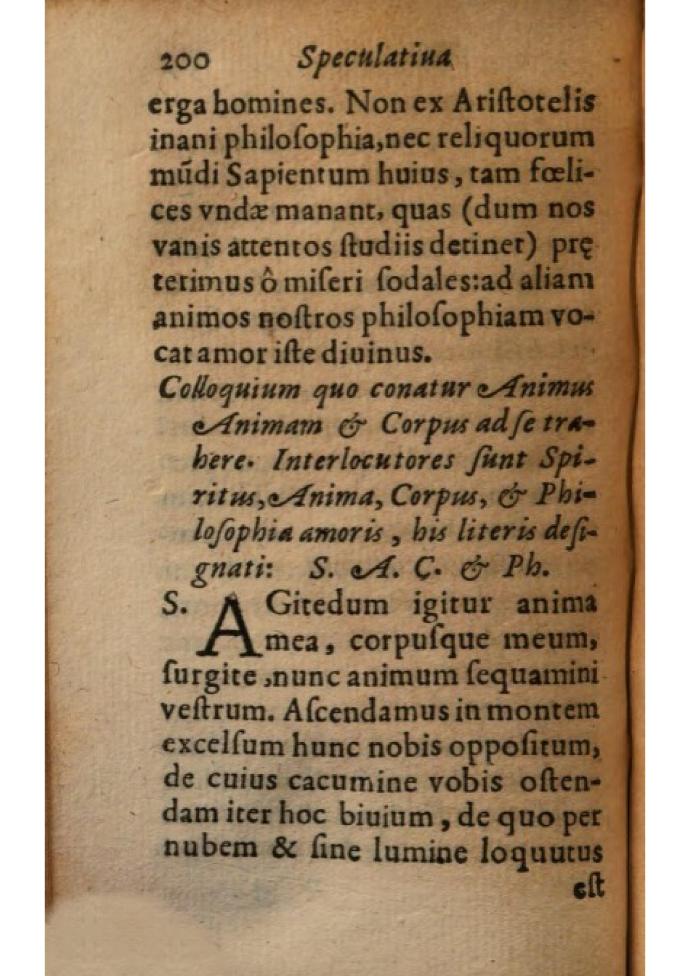 200 Speculatiua
erga homines. Non ex Ariſtotelis
inani philoſophia,nec reliquorum
mũdi Sapientum huius, tam fœli-
ces vndæ manant, quas (dum nos
vanis attentos ſtudiis detinet) prę
terimus ô miſeri ſodales:ad aliam
animos noſtros philoſophiam vo-
cat amor iſte diuinus.
Colloquium quo conatur Animus
Animam & Corpus ad ſe tra-
here. Interlocutores ſunt Spi-
ritus, Anima, Corpus, & Phi-
loſophia amoris, his literis deſi-
gnati: S. A. C. & Ph.
S. AGitedum igitur anima
mea, corpuſque meum,
ſurgite ,nunc animum ſequamini
veſtrum. Aſcendamus in montem
excelſum hunc nobis oppoſitum,
de cuius cacumine vobis oſten-
dam iter hoc biuium, de quo per
nubem & ſine lumine loquutus
eſt